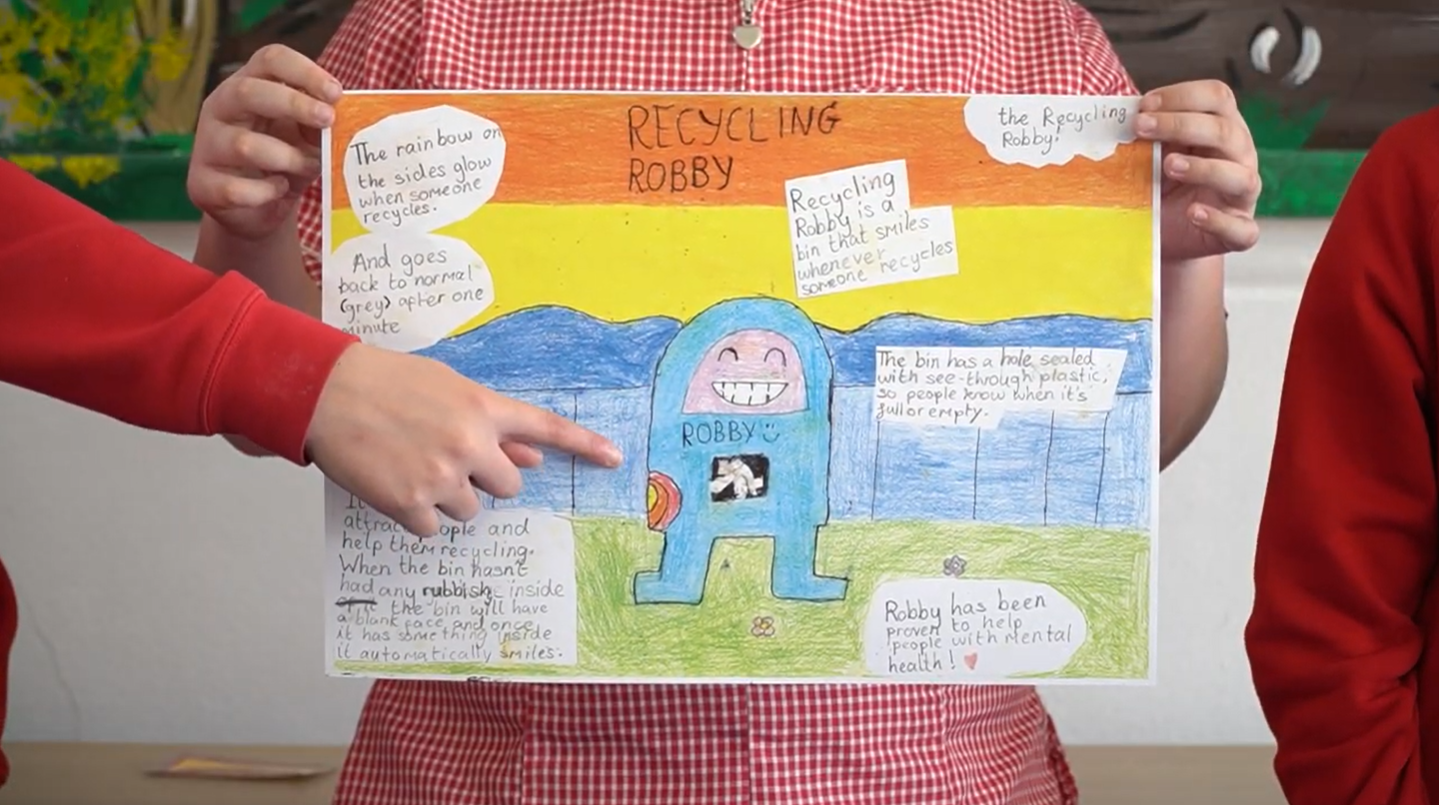 RECYCLING
ROBBY
The rainbow on
the sides glow
when someone
recycles.
And goes
back to normal
(grey) after one
minute
the Recycling
Robby!
Recycling
Robby is a
bin that smiles
whenever
someone recycles
The bin has a hole sealed
with see-through plastic,
so people know when it's
full or empty.
ROBBY
and
help them recycling.
When the bin hasn't
had any rubbish inside
the bin will have
a blank face and once
it has something inside
it automatically smiles.
Robby has been
proven to help
people with mental
health!